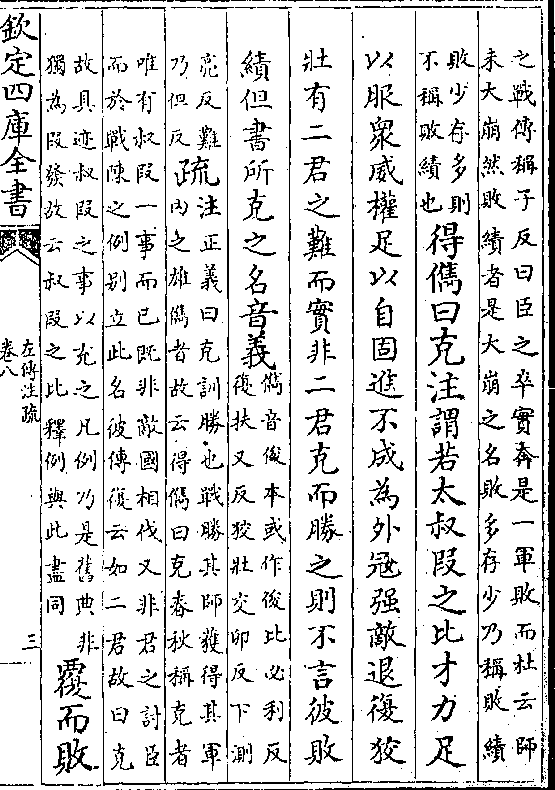 之戰傳稱子反曰臣之卒實奔是一軍敗而杜云師
未大崩然敗績者是大崩之名敗多存少乃稱敗績
敗少存多則
不稱敗績也
得儁曰克注謂若太叔段之比才力足
以服衆威權足以自固進不成為外冦强敵退復狡
壯有二君之難而實非二君克而勝之則不言彼敗
績但書所克之名音義
儁音俊本或作俊比必利反
復扶又反狡壯交卯反下測
亮反難
乃但反
疏
注正義曰克訓勝也戰勝其師獲得其軍
内之雄儁者故云得儁曰克春秋稱克者
唯有叔段一事而已既非敵國相伐又非君之討臣
而於戰陳之例别立此名彼傳復云如二君故曰克
故具迹叔段之事以充之凡例乃是舊典非
獨為段發故云叔段之比釋例與此盡同
覆而敗
欽定四庫全書
左傳注疏
卷八
三